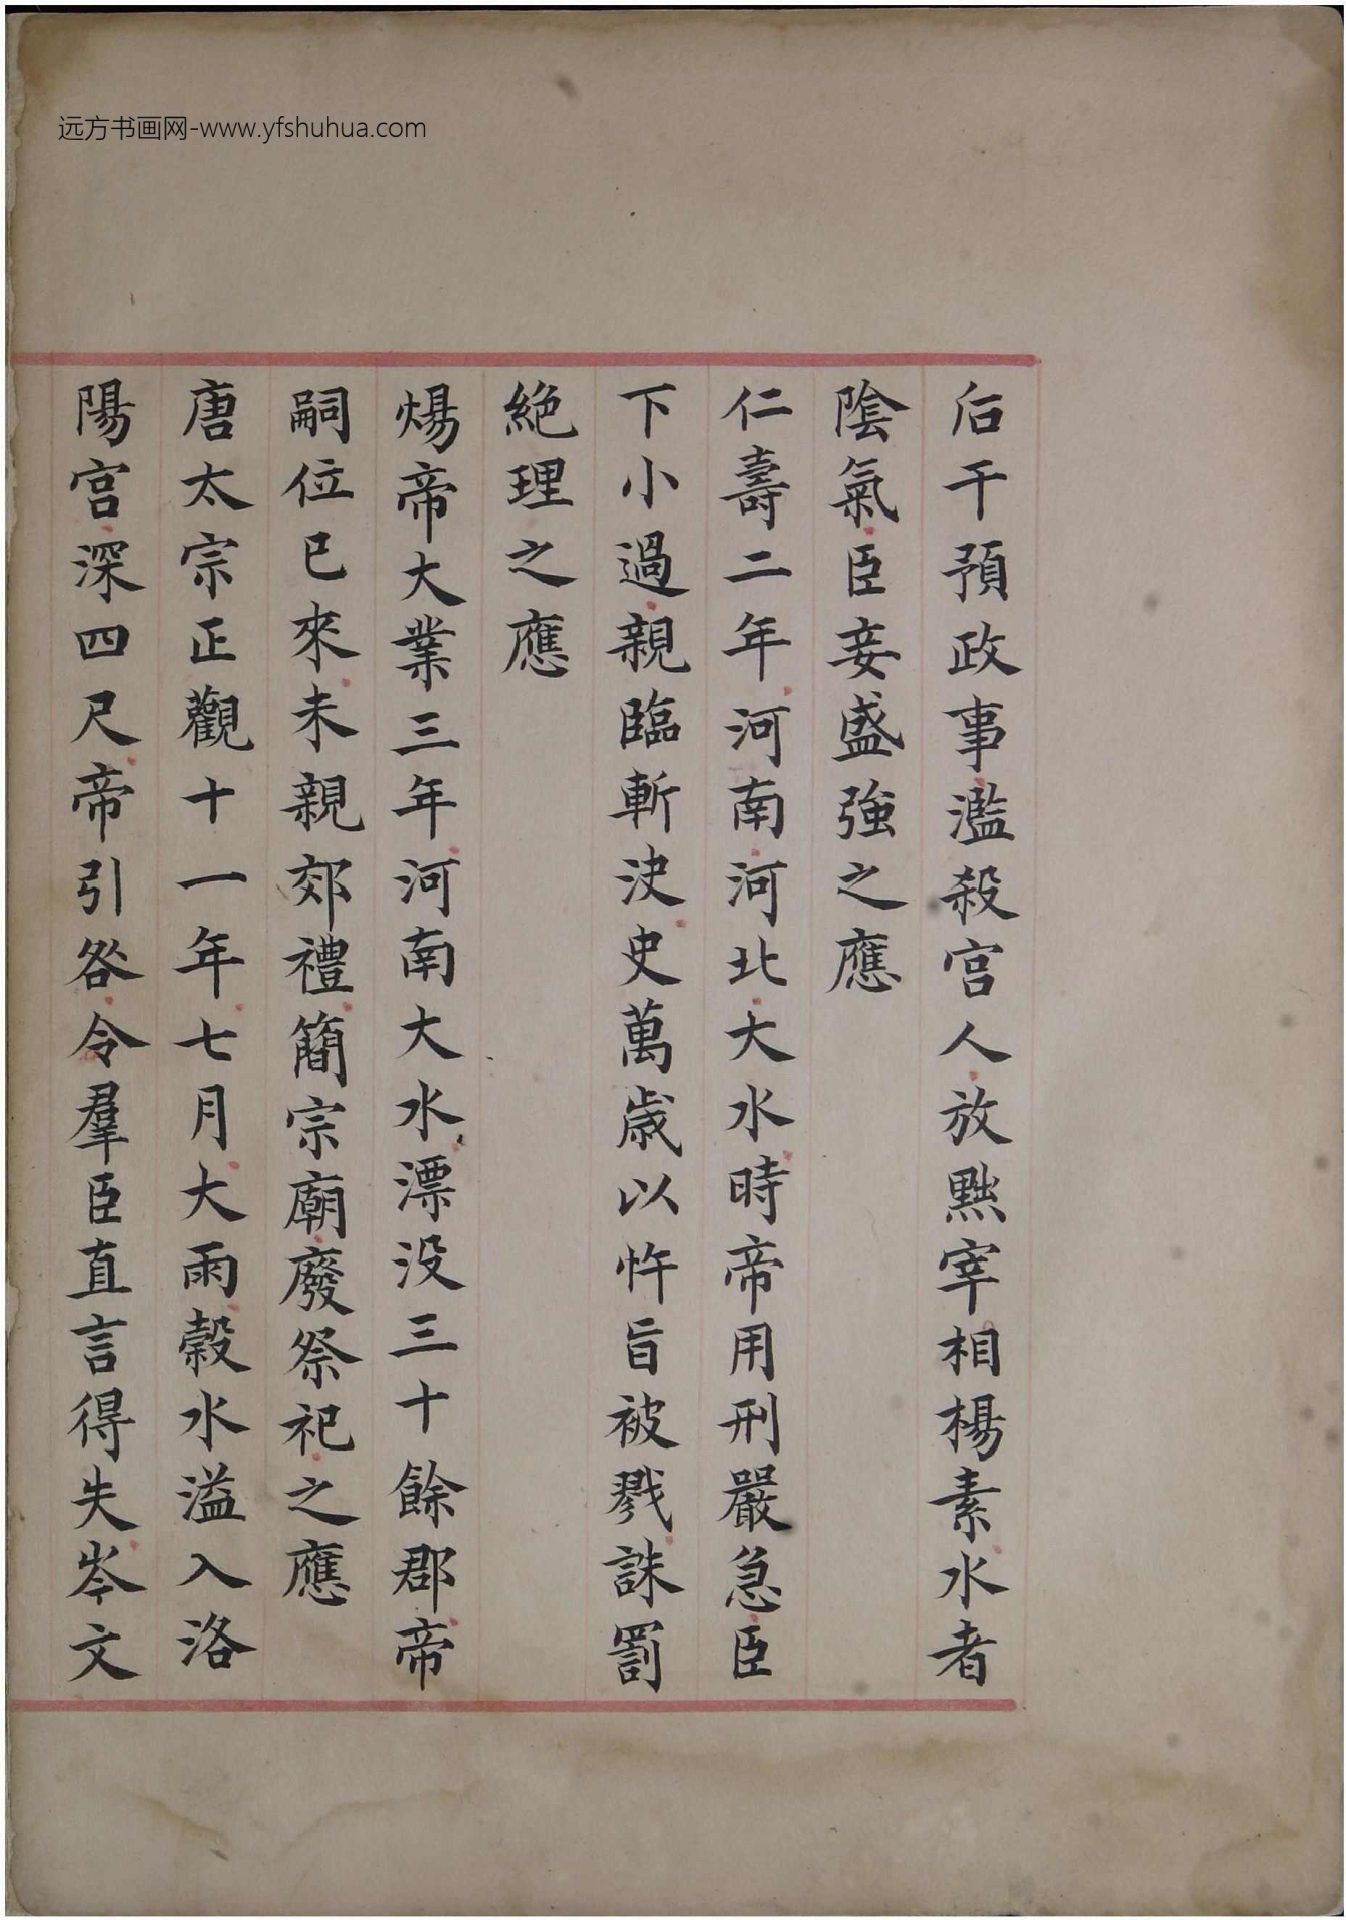 远方书画网-www.yfshuhua.com
后干預政事濫殺宮人放黜宰相楊素水者
陰氣臣妾盛強之應
仁壽二年河南河北大水時帝用刑嚴急臣
下小過親臨斬決史萬歲以忤旨被戮誅罰
絕理之應
煬帝大業三年河南大水漂没三十餘郡帝
嗣位已來未親郊禮簡宗廟廢祭祀之應
唐太宗正觀十一年七月大雨穀水溢入洛
陽宮深四尺帝引咎令羣臣直言得失岑文